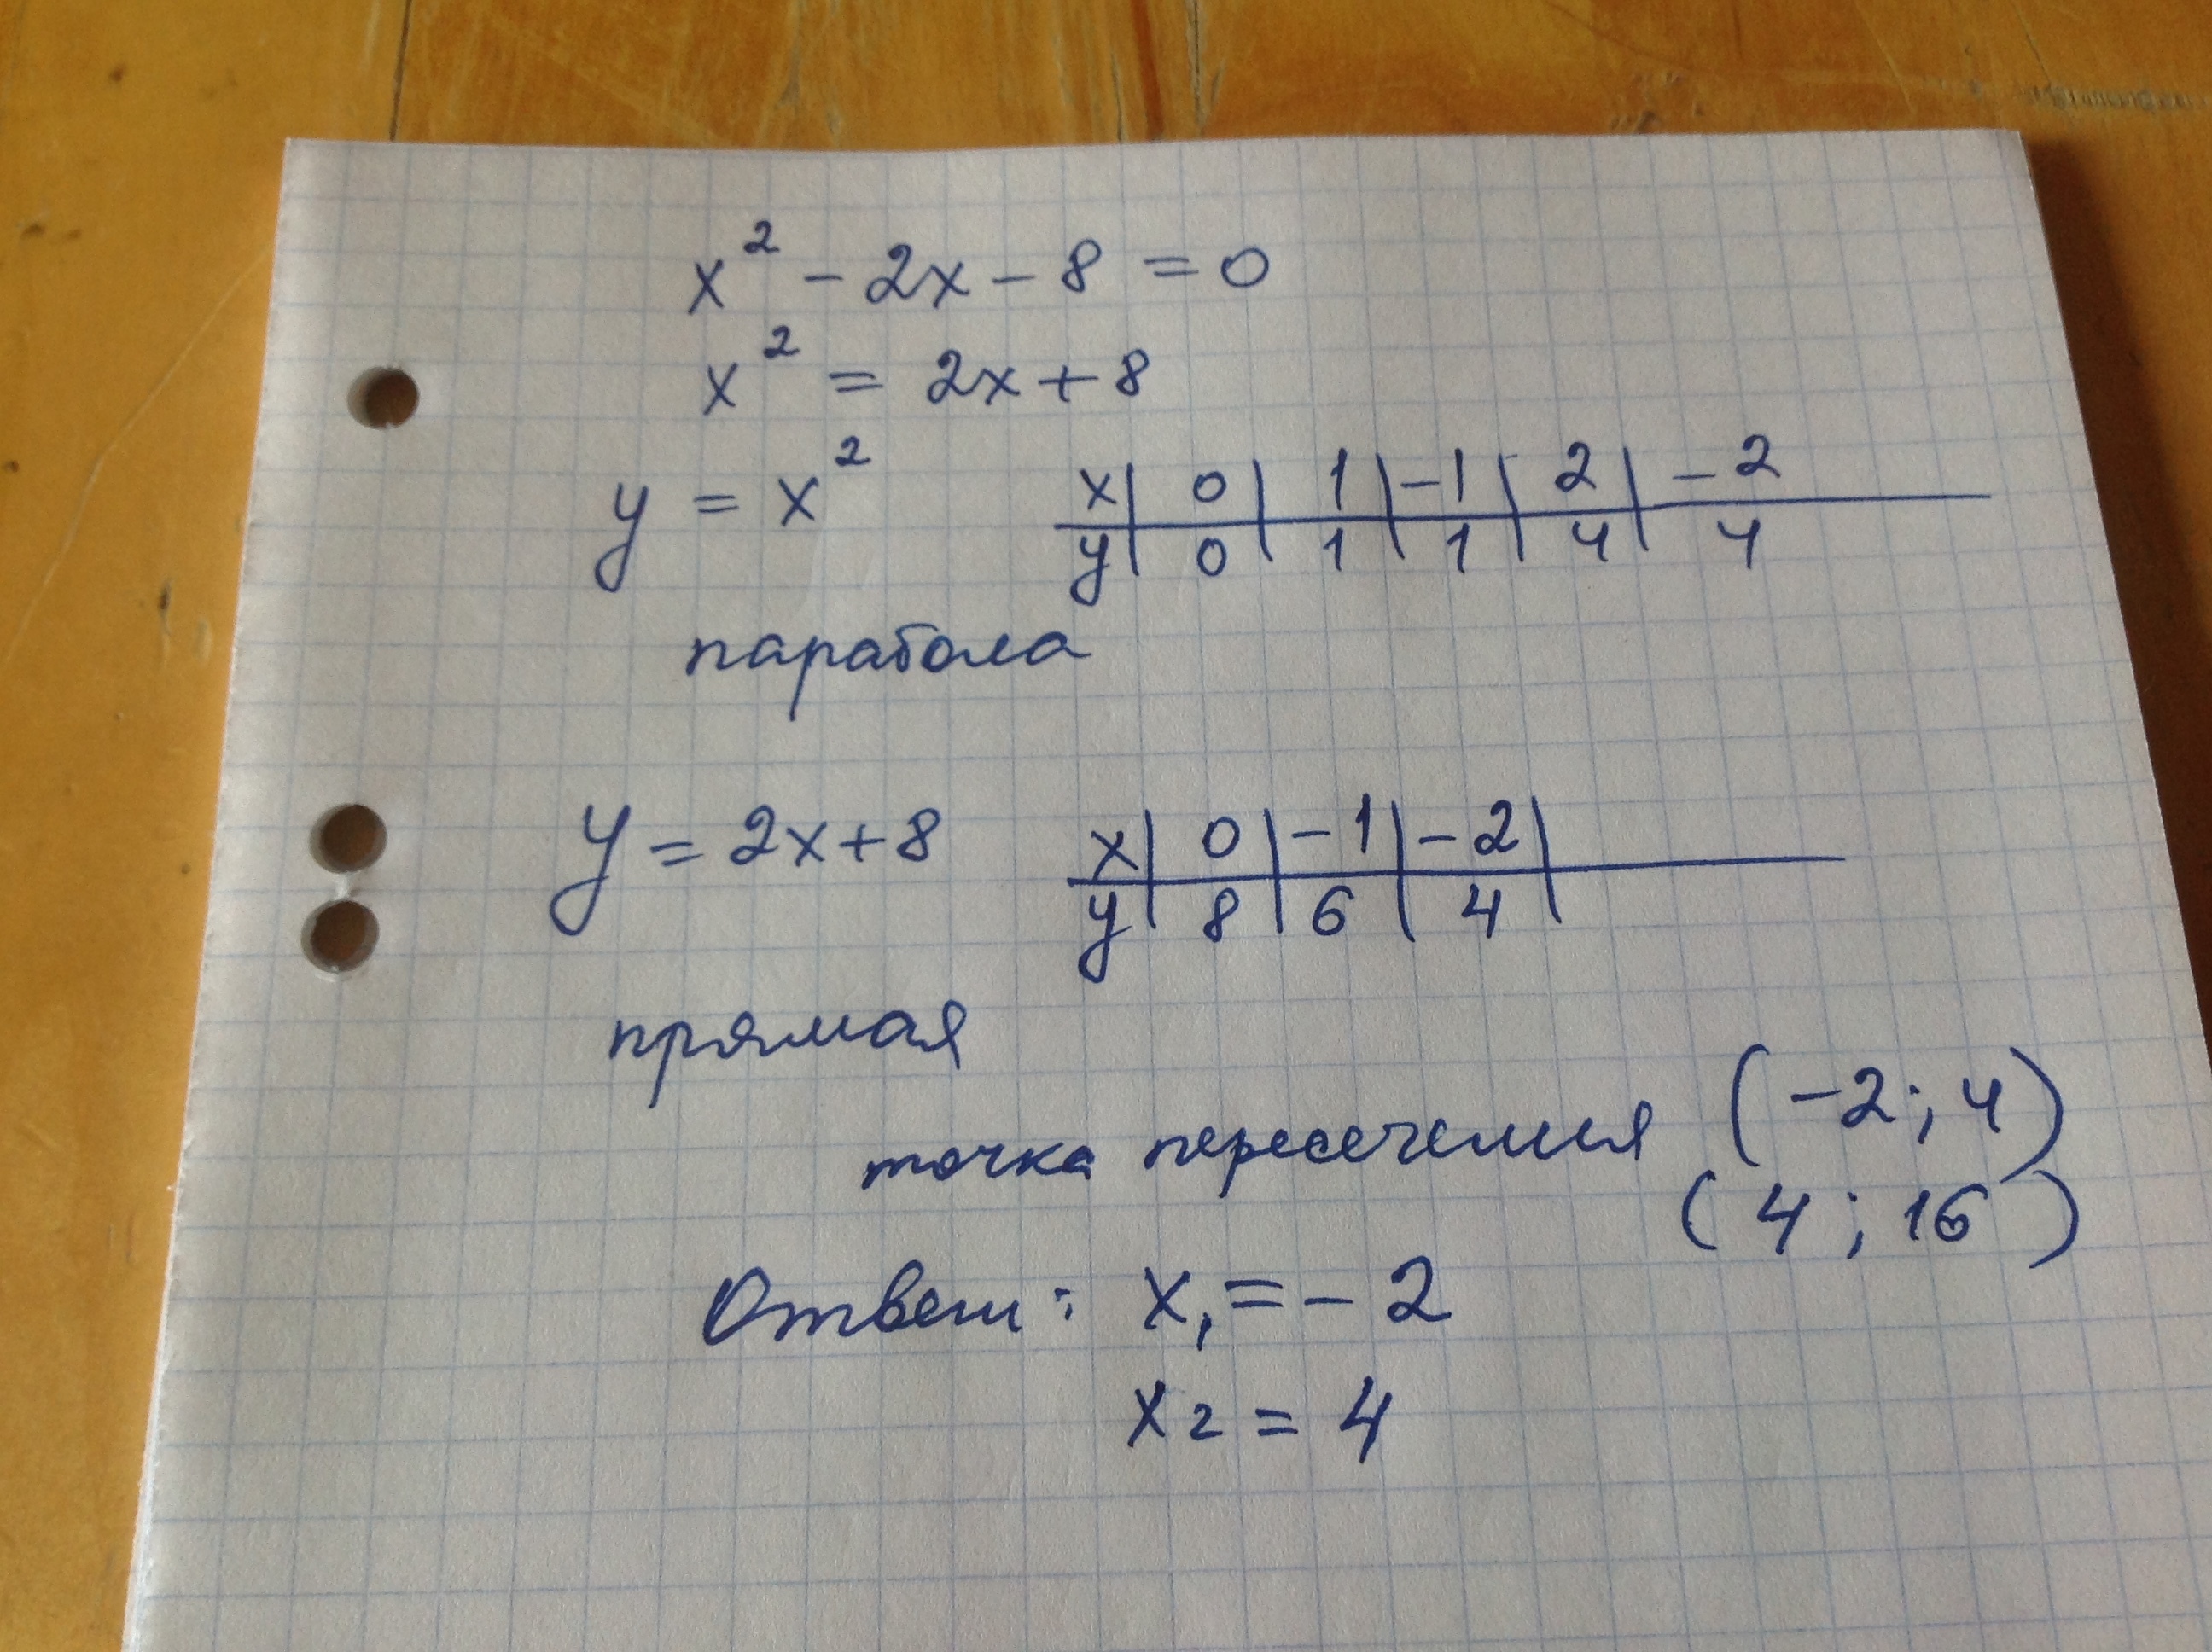 x² - 2x - 8 = 0
x² = 2x + 8
y = x²
x | 0 | 1 | -1 | 2 | -2
y | 0 | 1 | 1 | 4 | 4
парабола
y = 2x + 8
x | 0 | -1 | -2 |
y | 8 | 6 | 4 |
прямая
точка пересечения (-2; 4)
(4; 16)
Ответ: x₁ = -2
x₂ = 4